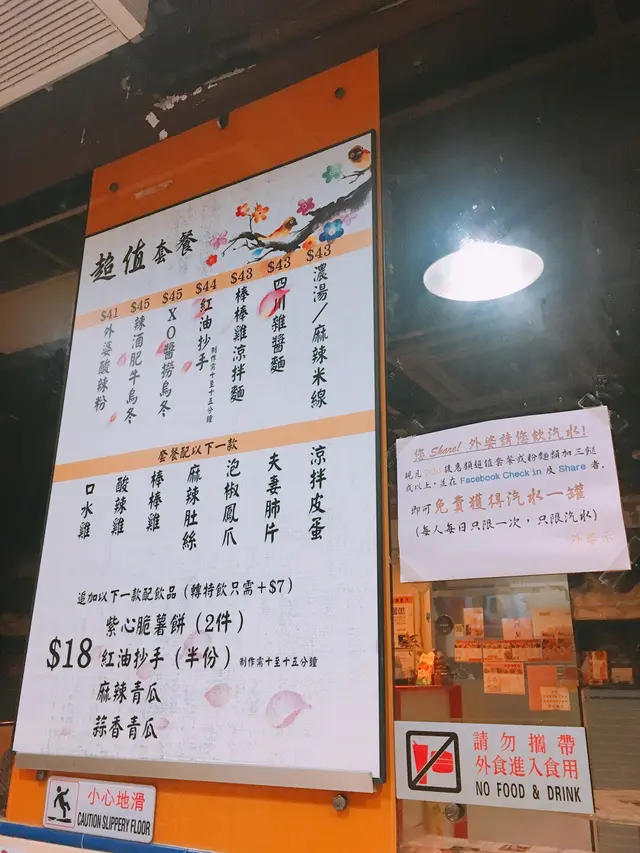 超值套餐
$43 濃湯/麻辣米線
$43 四川雜醬麵
$43 棒棒雞涼拌麵
$44 紅油抄手 制作需十至十五分鐘
$45 XO醬撈烏冬
$45 辣酒肥牛烏冬
$41 外婆酸辣粉
套餐配以下一款
涼拌皮蛋
夫妻肺片
泡椒鳳爪
麻辣肚絲
棒棒雞
酸辣雞
口水雞
追加以下一款配飲品(轉特飲只需+$7)
$18
紫心脆薯餅(2件)
紅油抄手(半份) 制作需十至十五分鐘
麻辣青瓜
蒜香青瓜
您 Share! 外婆請您飲汽水!
現凡 後惠顧超值套餐或粉麵類加三餸
或以上,並在 Facebook Check in 及 Share 者,
即可免費獲得汽水一罐
(每人每日只限一次,只限汽水)
外婆示
請勿攜帶
外食進入食用
NO FOOD & DRINK
小心地滑
CAUTION SLIPPERY FLOOR